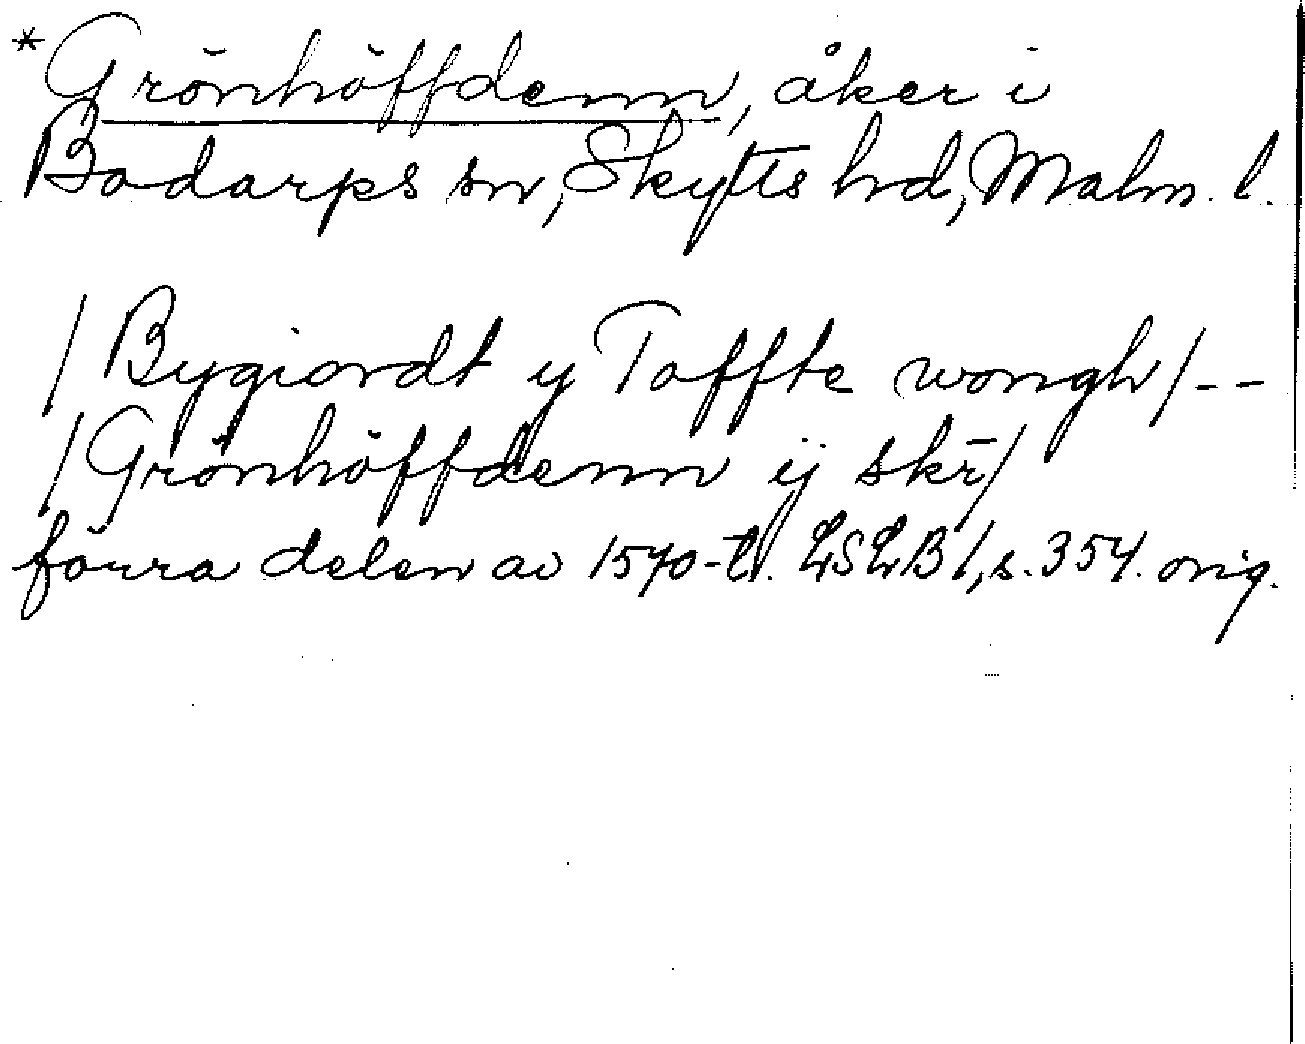 *Grönhöffdenn, åker i
Bodarps sn, Skytts hd, Malm. l.
/Bygiordt y Toffte wongh/--
/Grönhöffdenn ij skr̄/
förra delen av 1570-t. LSLB1, s. 354. orig.